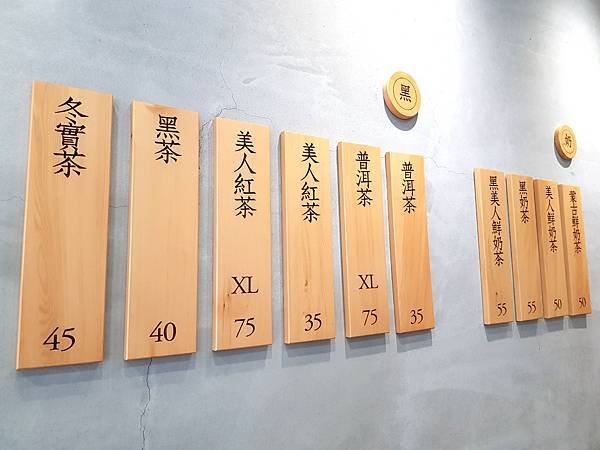 冬實茶
45
黑茶
40
美人紅茶
XL
75
美人紅茶
35
普洱茶
XL
75
普洱茶
35
黑
黑美人鮮奶茶
55
黑奶茶
55
美人鮮奶茶
50
蒙古鮮奶茶
50
奶